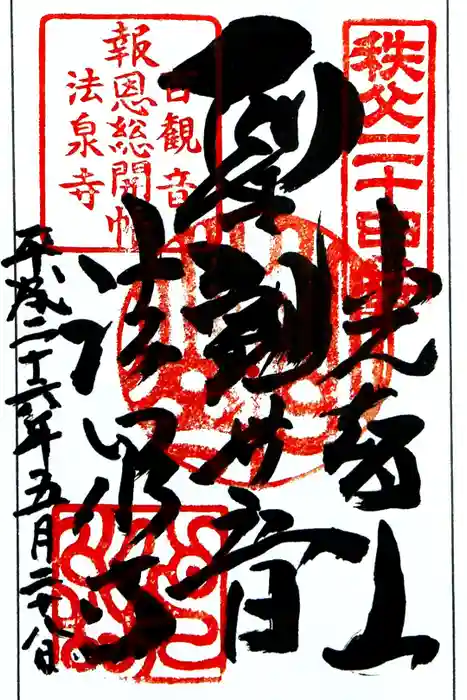 秩父二十四番
光智山
聖観世音
百観音
報恩総開帳
法泉寺
法泉寺
平成二十六年五月二十八日